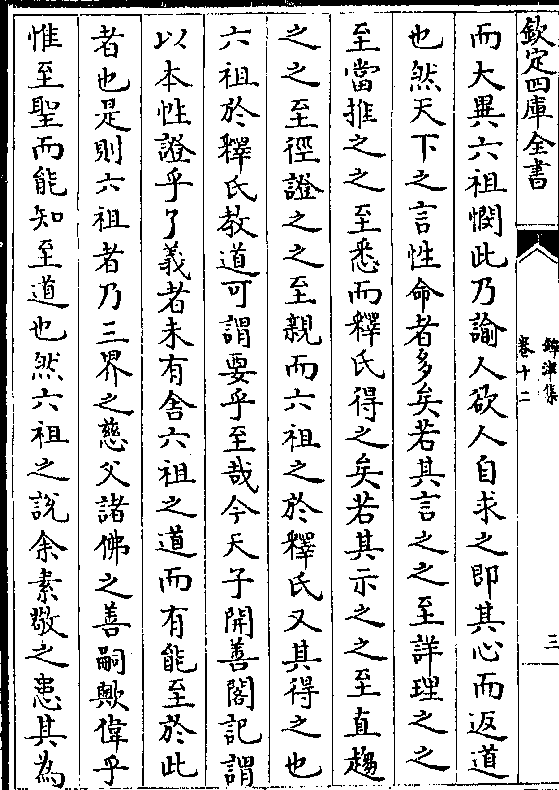 欽定四庫全書
鐔津集
卷十二
三
而大異六祖憫此乃諭人欲人自求之即其心而返道
也然天下之言性命者多矣若其言之之至詳理之之
至當推之之至悉而釋氏得之矣若其示之之至直趨
之之至徑證之之至親而六祖之於釋氏又其得之也
六祖於釋氏教道可謂要乎至哉今天子開善閣記謂
以本性證乎了義者未有舍六祖之道而有能至於此
者也是則六祖者乃三界之慈父諸佛之善嗣歟偉乎
惟至聖而能知至道也然六祖之說余素敬之患其為